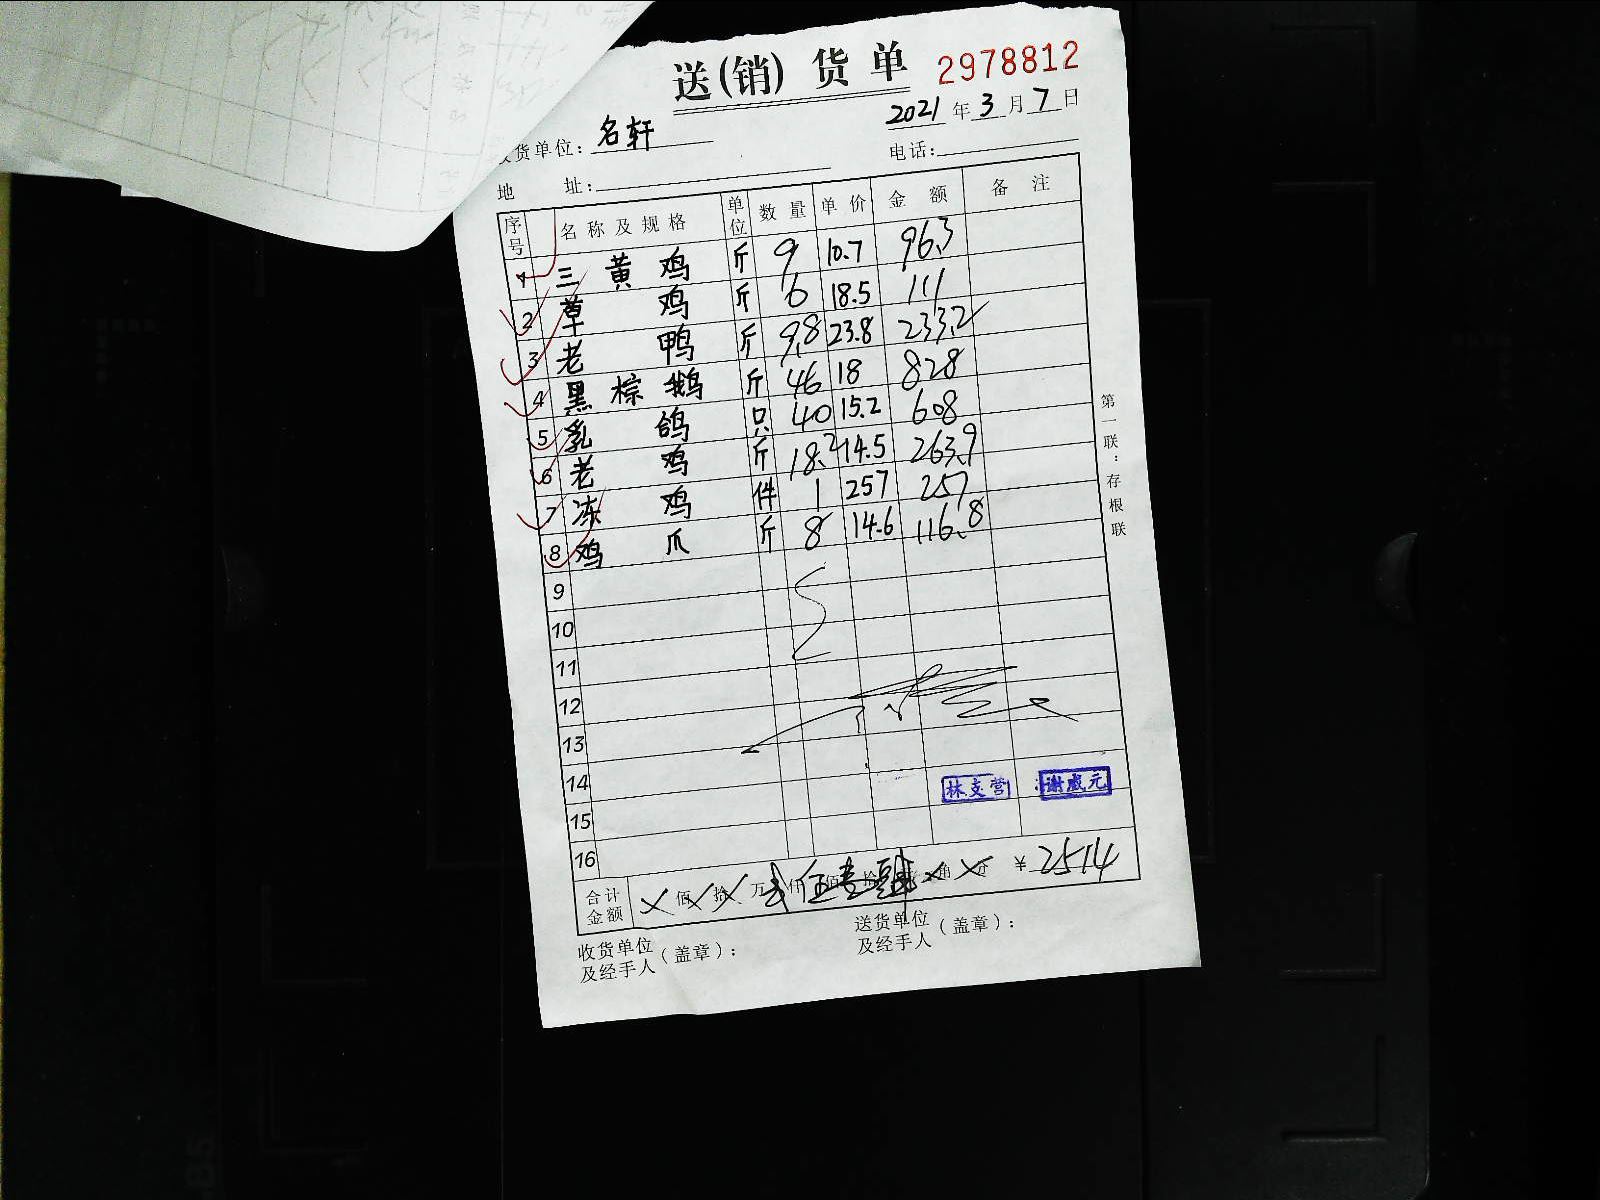 送(销)货单 2978812
2021年3月7日
收货单位: 名轩
电话:
地 址:
序号 名称及规格 单位 数量 单价 金额 备注
1 三黄鸡 斤 9 10.7 96.3
2 草鸡 斤 6 18.5 111
3 老鸭 斤 9.8 23.8 233.2
4 黑棕鹅 斤 46 18 828
5 乳鸽 只 40 15.2 608
6 老鸡 斤 18.2 14.5 263.9
7 冻鸡 件 1 257 257
8 鸡爪 斤 8 14.6 116.8
9
10
11
12
13
14
林支营 谢盛元
15
16
合计金额 佰 拾 万 仟 伍佰壹拾 角 分 ¥2514
收货单位及经手人(盖章):
送货单位及经手人(盖章):
第一联:存根联